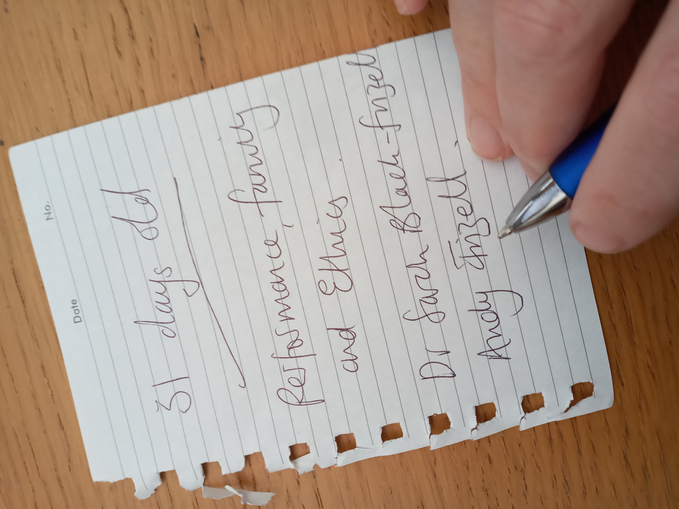 No.
Date
31 days old
Performance, family
and Ethics
Dr Sarah Black-Frizell
Andy Frizell.